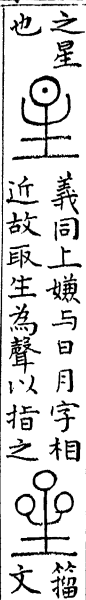 之星
也
義同上嫌与日月字相
近故取生為聲以指之
籀
文